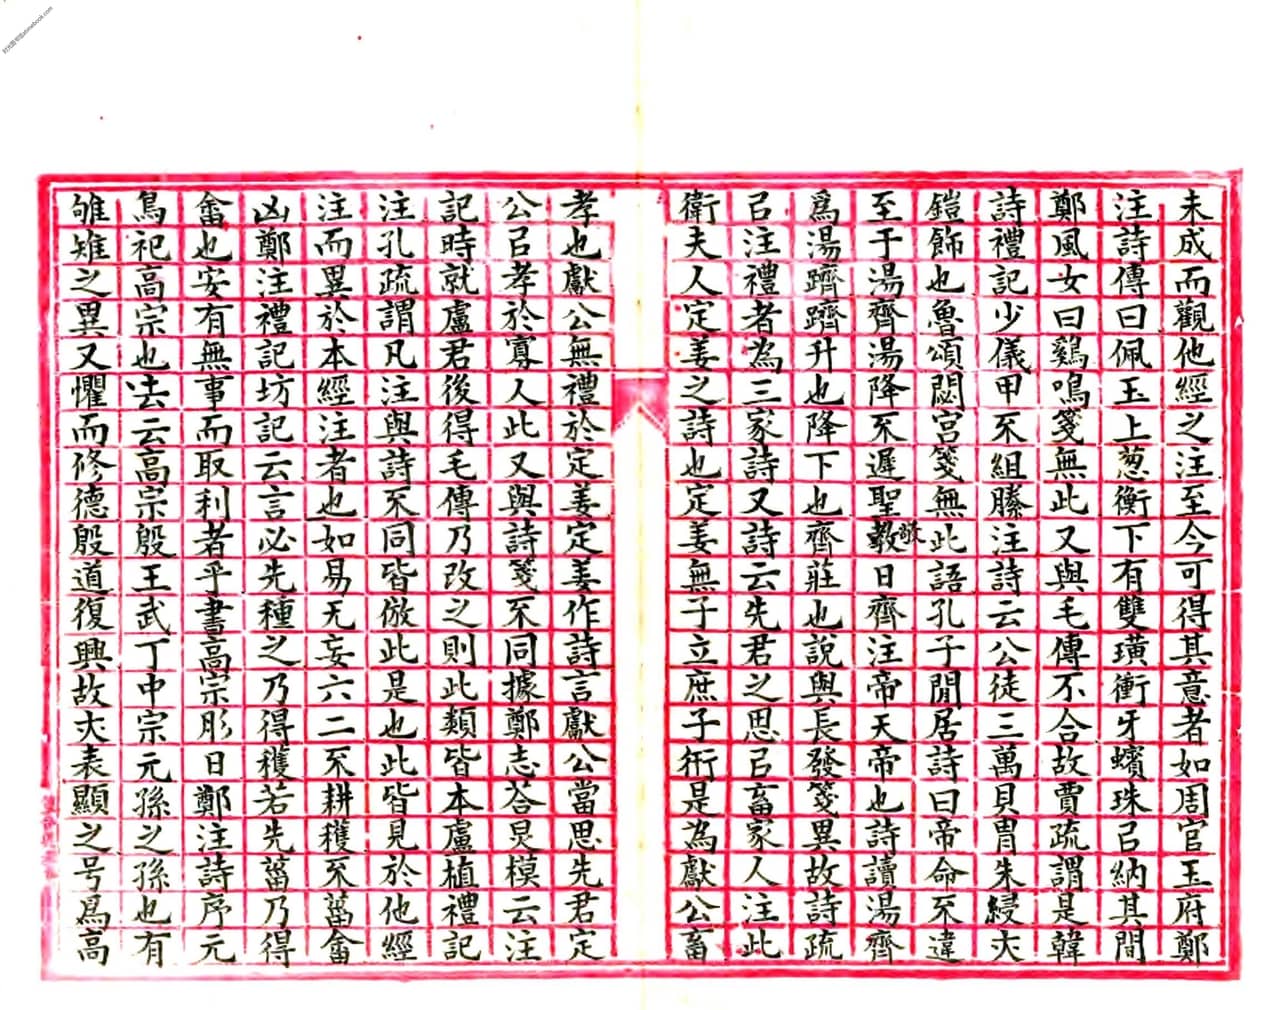 未成而觀他經之注至今可得其意者如周官玉府鄭
注詩傳曰佩玉上葱衡下有雙璜衝牙蠙珠㠯納其間
鄭風女曰鷄鳴箋無此又與毛傳不合故賈疏謂是韓
詩禮記少儀甲不組縢注詩云公徒三萬貝冑朱綅夫
鎧飾也魯頌閟宮箋無此語孔子閒居詩曰帝命不違
至于湯齊湯降不遲聖敬日齊注帝天帝也詩讀湯齊
爲湯躋躋升也降下也齊莊也說與長發箋異故詩疏
㠯注禮者為三家詩又詩云先君之思㠯畜家人注此
衛夫人定姜之詩也定姜無子立庶子衎是為獻公畜
孝也獻公無禮於定姜定姜作詩言獻公當思先君定
公㠯孝於寡人此又與詩箋不同據鄭志荅炅模云注
記時就盧君後得毛傳乃改之則此類皆本盧植禮記
注孔疏謂凡注與詩不同皆倣此是也此皆見於他經
注而異於本經注者也如易无妄六二不耕穫不菑畬
凶鄭注禮記坊記云言必先種之乃得穫若先菑乃得
畬也安有無事而取利者乎書高宗肜日鄭注詩序元
鳥祀高宗也去云高宗殷王武丁中宗元孫之孫也有
雊雉之異又懼而修德殷道復興故夫表顯之号爲高